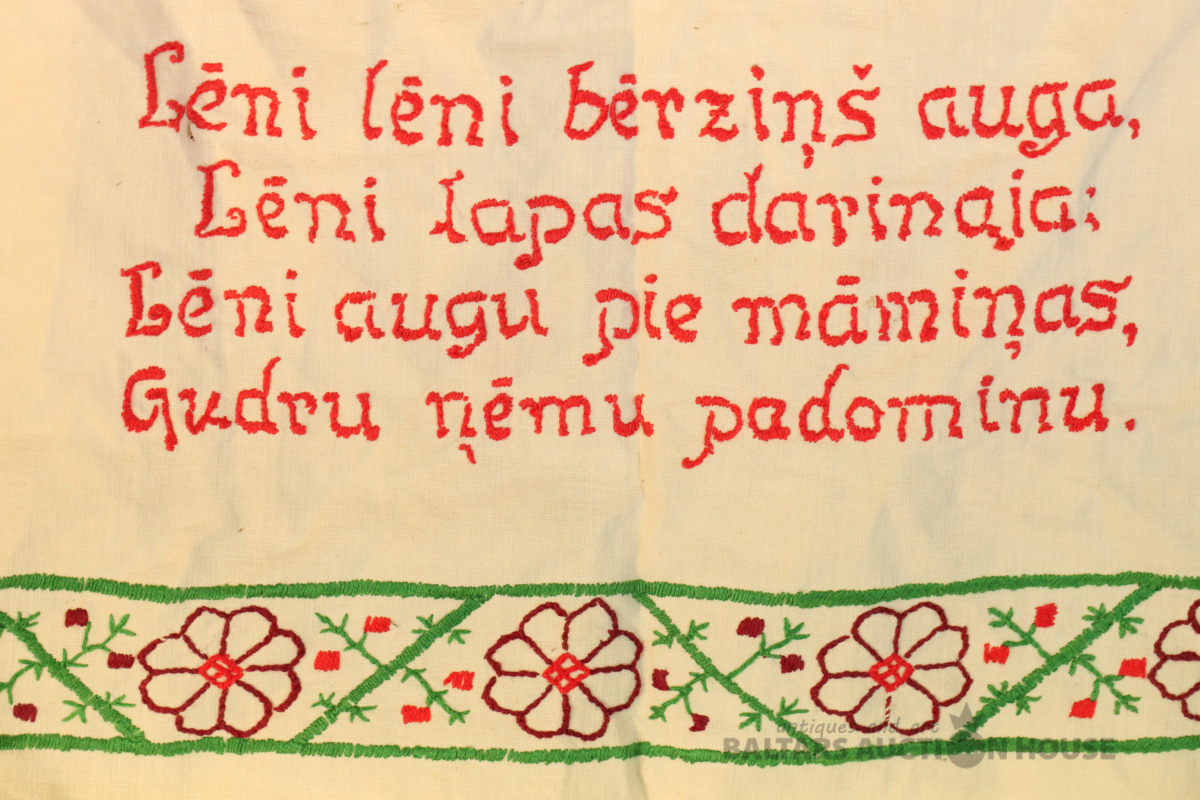 Lēni lēni bērziņš auga,
Lēni lapas darinaja;
Lēni augu pie māmiņas,
Gudru ņēmu padominu.
antiques and art
BALTARS AUCTION HOUSE